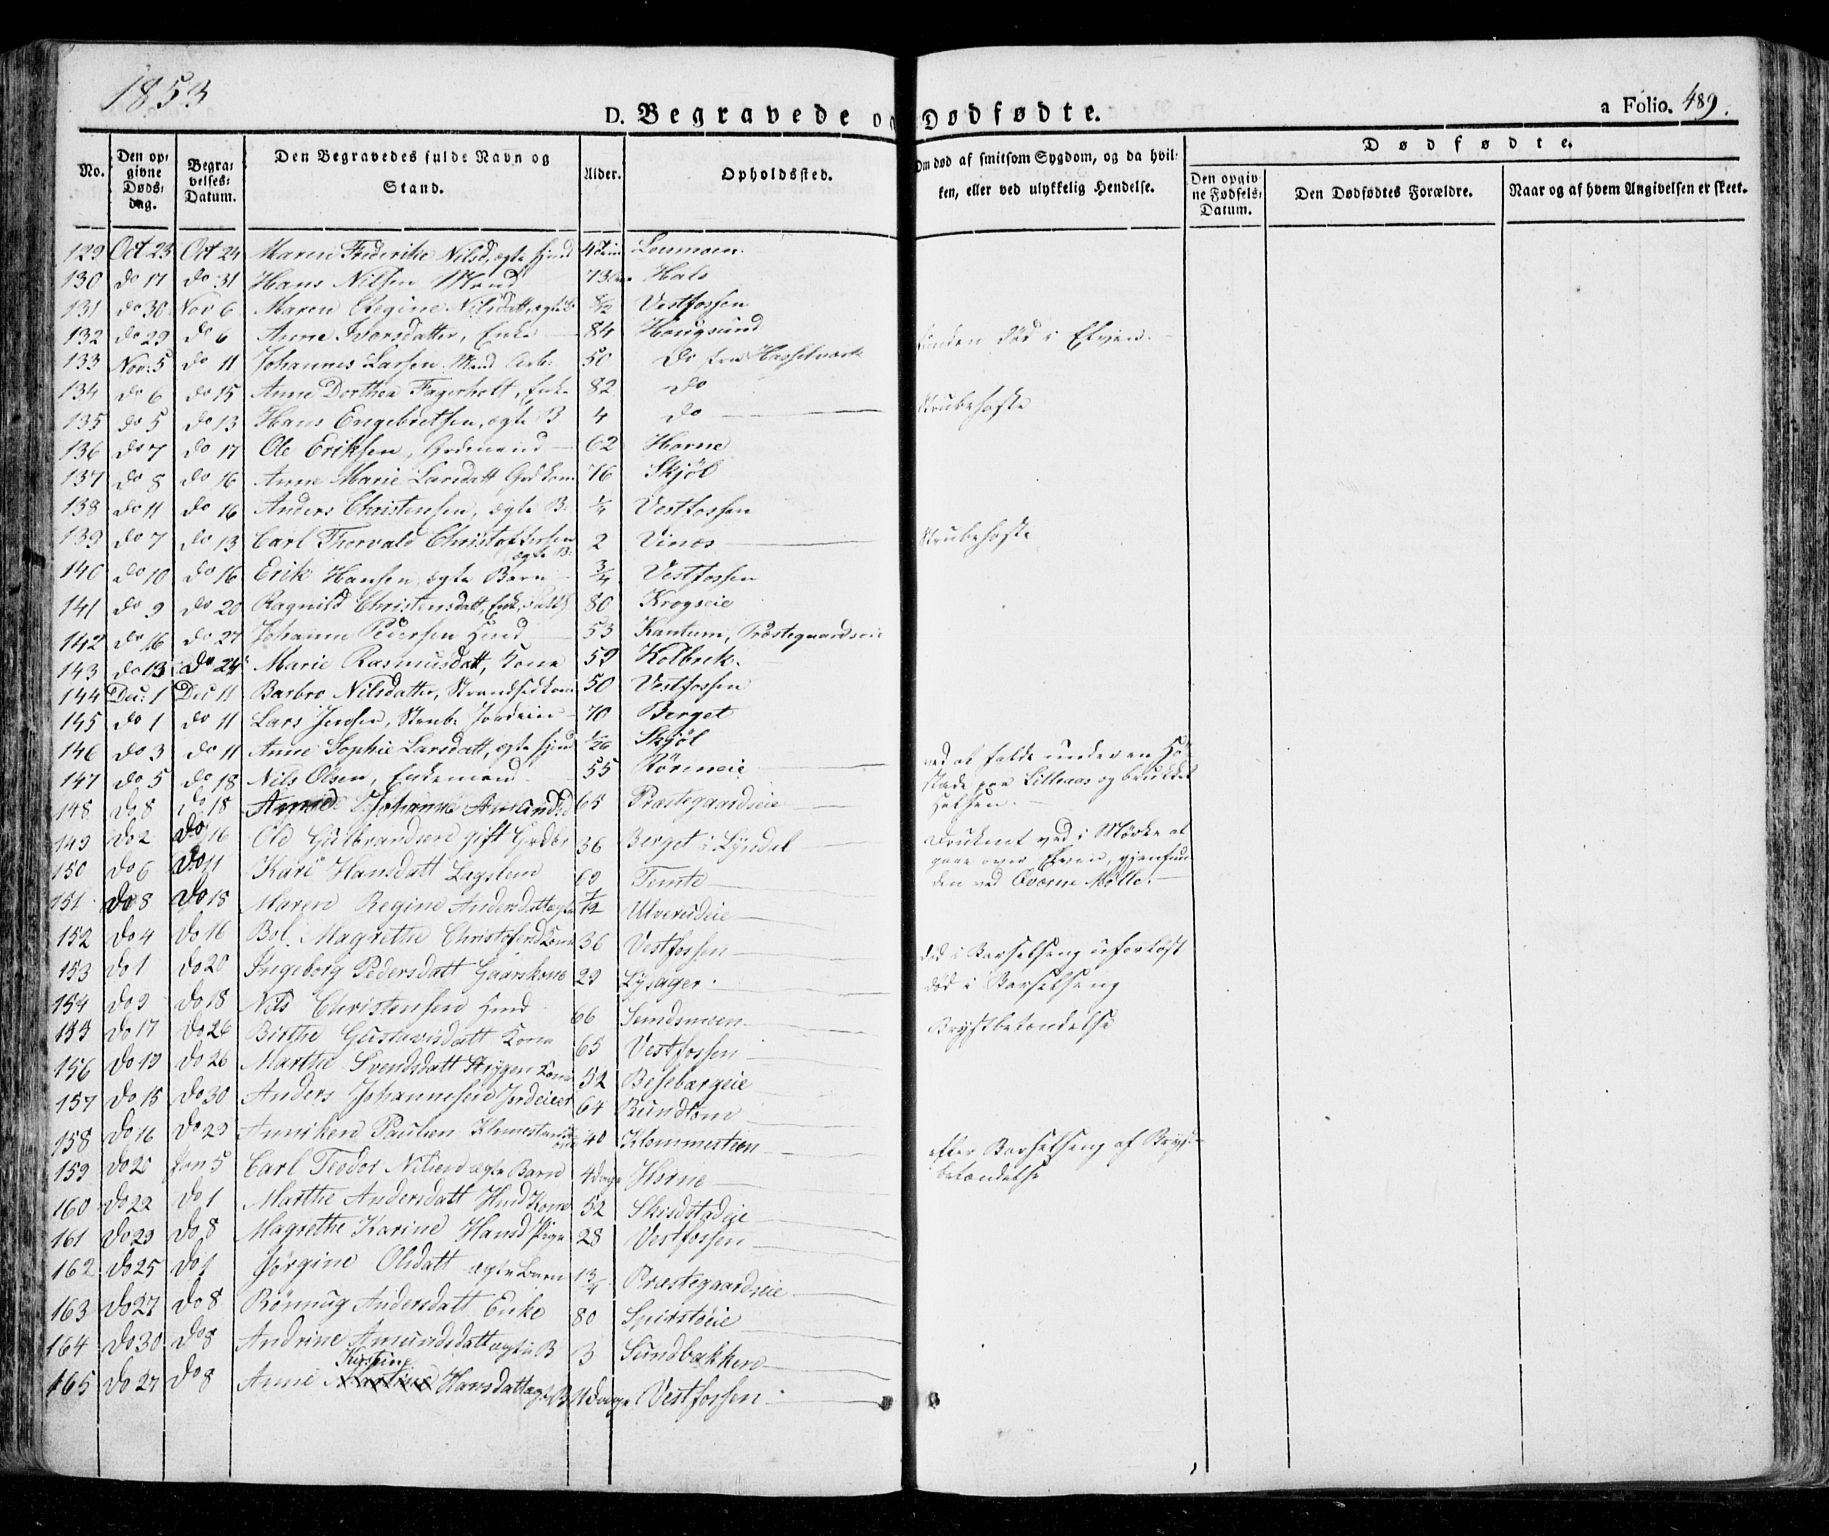 1853
D. Begravede og Dødfødte.
a Folio. 489.
No. Den opgivne Dødsdag. Begravelses Datum. Den Begravedes fulde Navn og Stand. Alder. Opholdssted. Om død af smitsom Sygdom, og da hvilken, eller ved ulykkelig Hendelse.
Dødfødte.
Den opgivne Fødsels-Datum. Den Dødfødtes Forældre. Naar og af hvem Angivelsen er skeet.
129 Oct 23 Oct 24 Maren Frederikke Nilsd, ægte
130 do 17 do 31 Hans Nilsen Mand 73 Hals
131 do 30 Nov 6 Maren Regine Nilsdatt, ægte B Vestfossen
132 do 29 do 6 Anne Iversdatter, Enke 84 Hougsund funden død i Elven.
133 Nov. 5 do 11 Johannes Larsen, Mand Arb. 50 do fra Hasselværk
134 do 6 do 15 Anne Dorthea Fagerholt, Enke 82 do
135 do 5 do 13 Hans Engebretsen, ægte B 4 do Strubehoste
136 do 7 do 17 Ole Eriksen, Grdmand 62 Horne
137 do 8 do 16 Anne Marie Larsdatt Grdkone 76 Skjøl
138 do 11 do 16 Anders Christensen, ægte B. 1/4 Vestfossen
139 do 7 do 13 Carl Thorvald Christoffersen 2 Vinæs Strubehoste
ægte B.
140 do 10 do 16 Erik Hansen, ægte Barn 3/4 Vestfossen
141 do 9 do 20 Ragnild Christensdatt, Enke, 80 Krogseie
142 do 16 do 27 Johann Pedersen 53 Kantum, Præstegaardseie
143 do 13 do 24 Marie Rasmusdatt, Kone 59 Kolbrek.
144 Dec. 1 Dec 11 Barbro Nilsdatter, Strandsidkone 50 Vestfossen
145 do 1 do 11 Lars Jensen, 70 Berget
146 do 3 do 11 Anne Sophie Larsdatt, ægte 1/26 Skjøl
147 do 5 do 18 Nils Olsen, Enkemand 55 ved at falde under en
148 do 8 do 18 Johanne 65 Præstegardseie
149 do 2 do 16 Ole Gulbrandsen gift Grdbr 36 Berget i Lyndal Druknet ved i Mørke at
150 do 6 do 11 Kari Hansdatt Lægslem 60 Temte gaae over Elven, gjenfunden ved Øvarne Mølle.
151 do 8 do 18 Maren Regine Andersdatt ægte 7/12 Ulverudeie
152 do 4 do 16 Bol. Magrethe Christofersd Kone 36 Vestfossen død i Barselseng uforløst
153 do 1 do 20 Ingeborg Pedersdatt Gaarskone 29 Lysager død i Barselseng
154 do 9 do 18 Nils Christensen 66 Semdsmoen
155 do 17 do 26 Birthe Gustavisdatt Kone 65 Vestfossen Brystbetændelse
156 do 19 do 26 Marthe Svendsdatt Kone 52 Besebergeie
157 do 15 do 30 Anders Johannesen Jordeier 64
158 do 16 do 29 Anniken Paulsen 40 efter Barselseng af Bryst-
159 do 20 Jan 5 Carl Teodor Nilsen ægte Barn 4 dage Horne betændelse
160 do 22 do 1 Marthe Andersdatt Kone 52 Skistadeie
161 do 29 do 8 Magrethe Karine Hansd Pige 28 Vestfossen
162 do 25 do 1 Jørgine Olsdatt ægte Barn 1 3/4 Præstegaardseie
163 do 27 do 8 Rønnug Andersdatt Enke 80
164 do 30 do 8 Andrine Amundsdatt ægte B 3 Sundbakken
Kirstine
165 do 27 do 8 Anne Martine Hansdatt ægte B Vestfossen